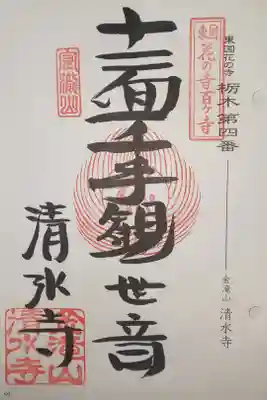 東国花の寺
栃木第四番
金滝山 清水寺
東国
花の寺百ヶ寺
十一面千手観世音
清水寺
金滝山
清水寺